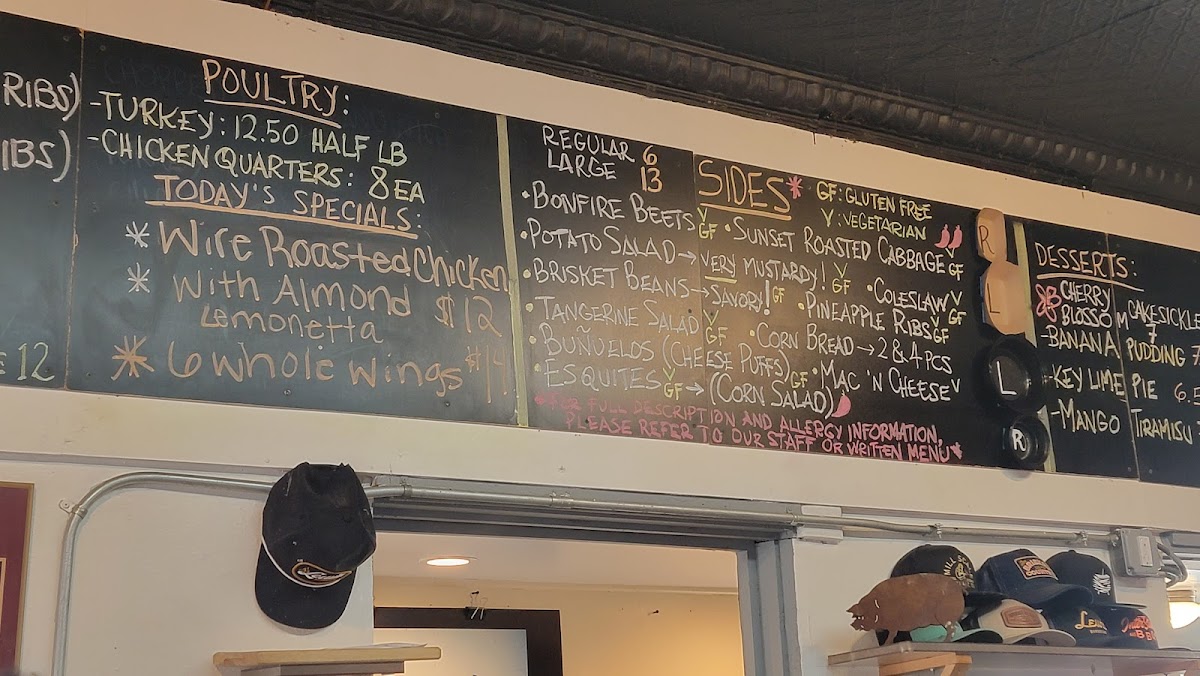 RIBS)
IBS)
E 12
POULTRY:
-TURKEY: 12.50 HALF LB
-CHICKEN QUARTERS: 8 EA
TODAY'S SPECIALS:
* Wire Roasted Chicken
* With Almond $12
Lemonetta
* 6 whole wings $14
REGULAR 6
LARGE 13
SIDES*
GF: GLUTEN FREE
V: VEGETARIAN
•BONFIRE BEETS V GF
•POTATO SALAD→VERY MUSTARDY! V GF
•BRISKET BEANS→SAVORY! GF
•TANGERINE SALAD V GF
•BUÑUELOS (CHEESE PUFFS) GF
•ESQUITES V GF→(CORN SALAD)
•SUNSET ROASTED CABBAGE GF
•COLESLAW V GF
•PINEAPPLE RIBS V GF
•CORN BREAD→2 & 4 PCS
•MAC 'N CHEESE V
*FOR FULL DESCRIPTION AND ALLERGY INFORMATION,
PLEASE REFER TO OUR STAFF OR WRITTEN MENU*
R
L
L
R
DESSERTS:
CHERRY
BLOSSOM CAKESICKLE
7
-BANANA PUDDING 7
-KEY LIME PIE 6.5
-MANGO TIRAMISU